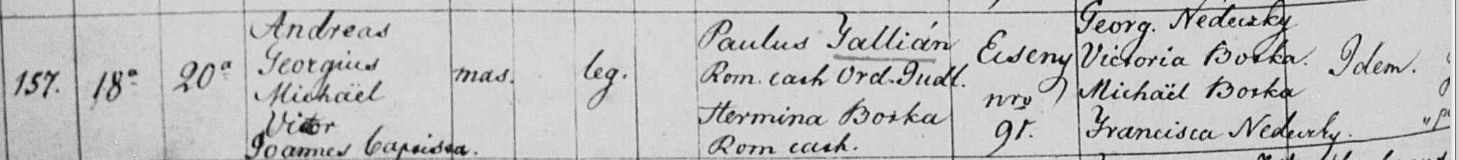 157. 18ª 20ª
Andreas
Georgius
Michaël
Victor
Joannes Capistra.
mas.
leg.
Paulus Gallián
Rom. cath Ord. Judl.
Hermina Boska
Rom cath.
Eiseny
nro
91.
Georg. Nedeczky
Victoria Boska.
Michaël Boska
Francisca Nedeczky.
Idem.